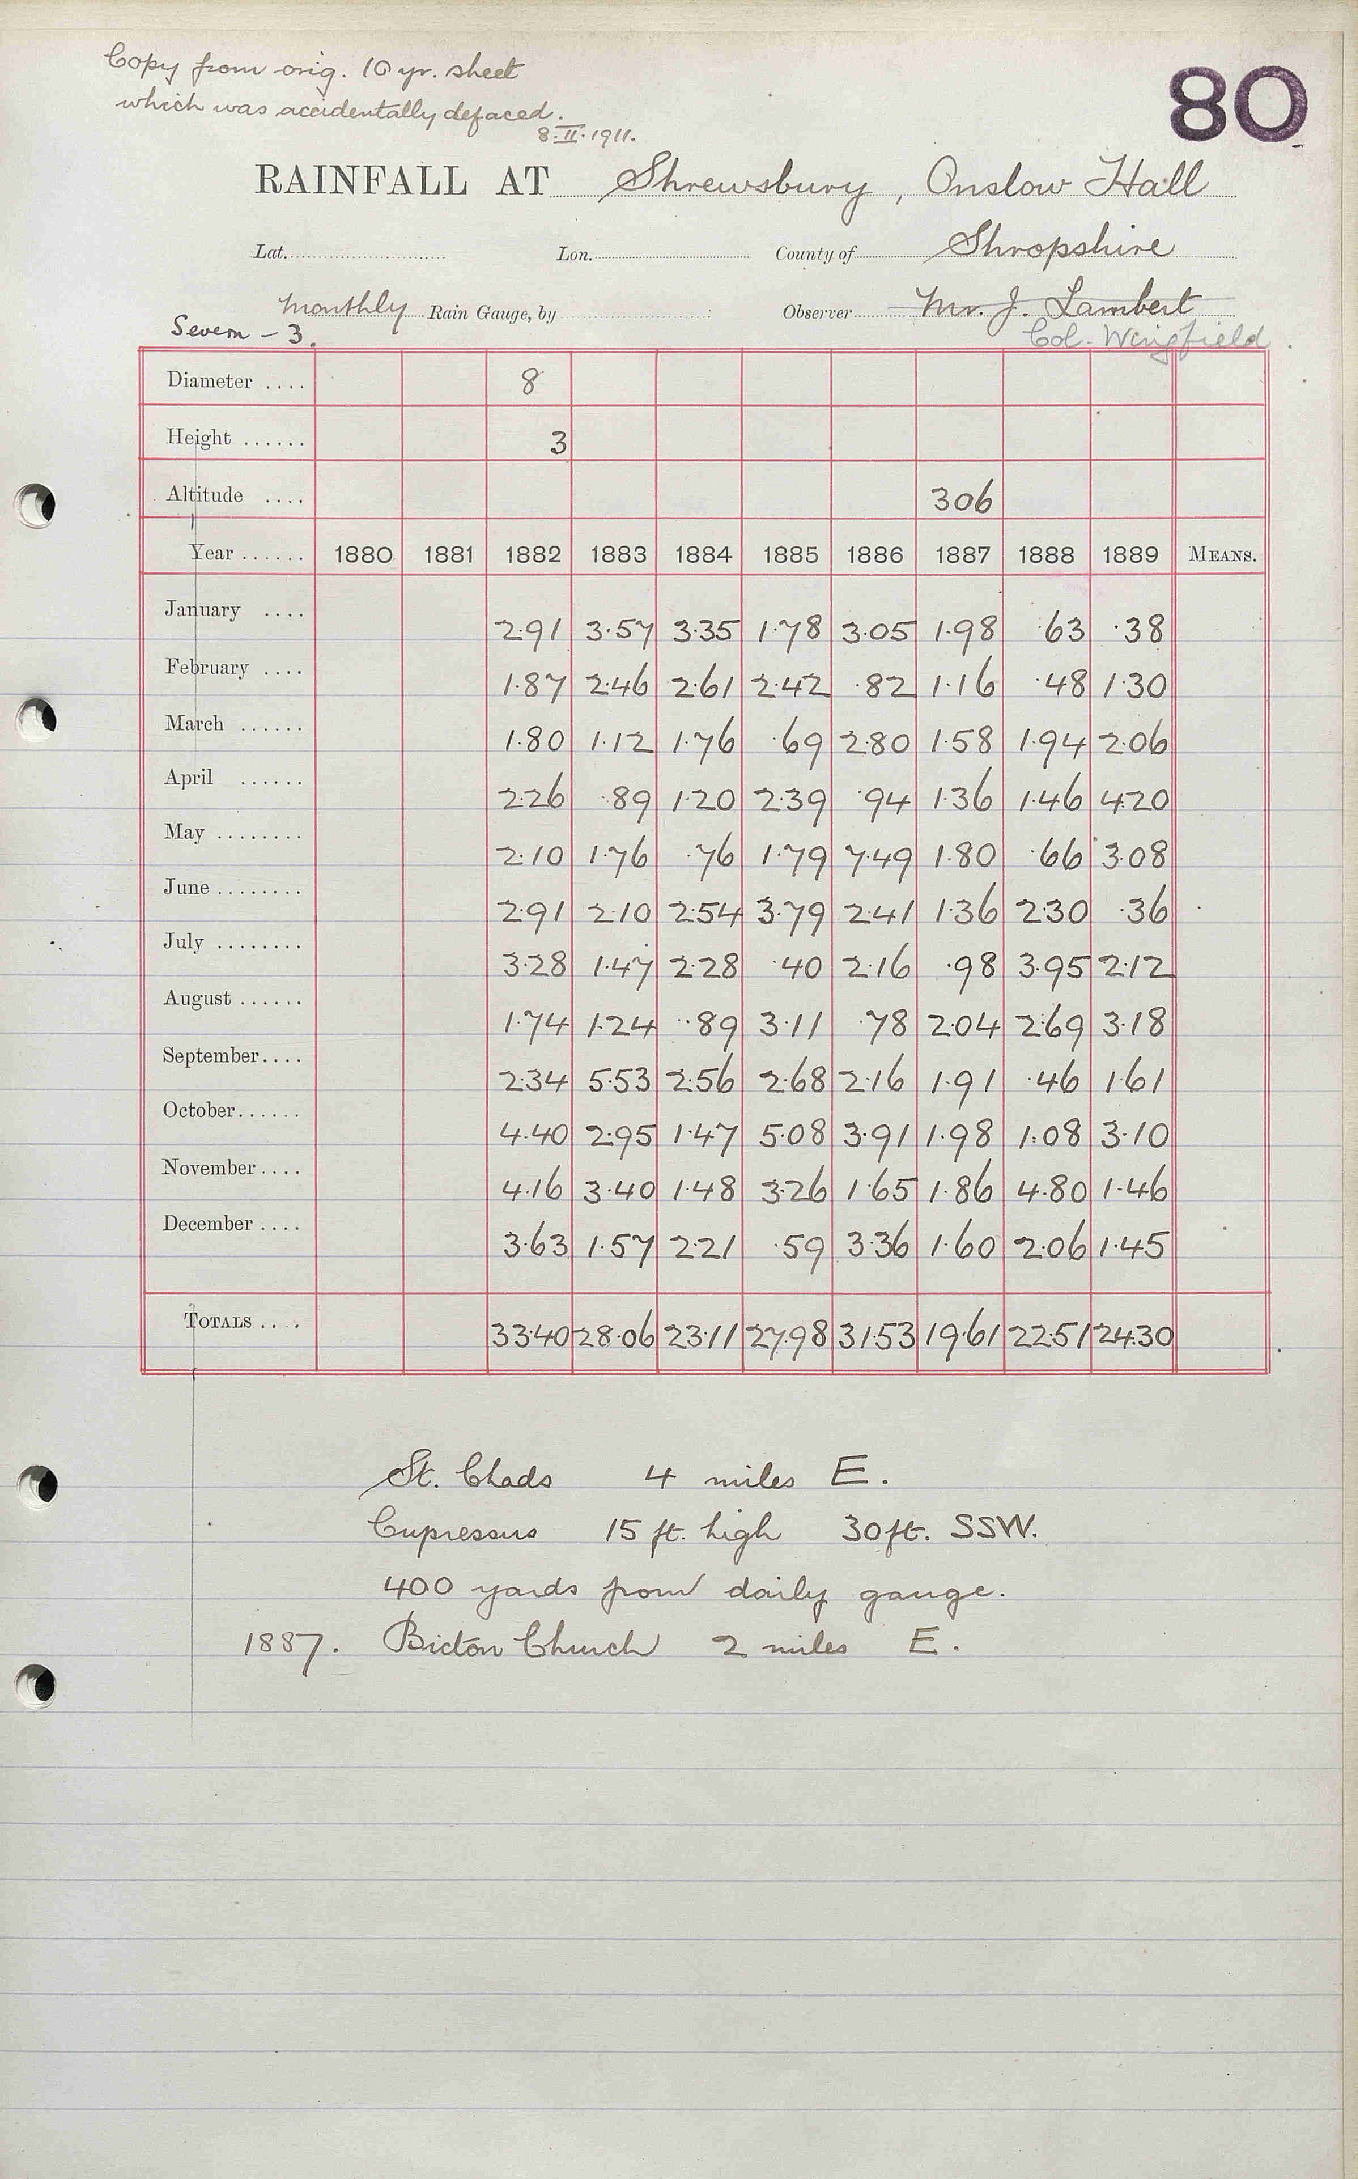 Copy from orig. 10 yr. sheet
which was accidentally defaced.
8.II.1911.
80
RAINFALL AT Shrewsbury, Onslow Hall
Lat. Lon. County of Shropshire
monthly Rain Gauge, by Observer Mr. J. Lambert
Severn - 3. Col. Wingfield.
Diameter .... 8
Height ...... 3
Altitude .... 306
Year ...... 1880 1881 1882 1883 1884 1885 1886 1887 1888 1889 MEANS.
January .... 2.91 3.57 3.35 1.78 3.05 1.98 .63 .38
February .... 1.87 2.46 2.61 2.42 .82 1.16 .48 1.30
March ...... 1.80 1.12 1.76 .69 2.80 1.58 1.94 2.06
April ...... 2.26 .89 1.20 2.39 .94 1.36 1.46 4.20
May ........ 2.10 1.76 .76 1.79 7.49 1.80 .66 3.08
June ........ 2.91 2.10 2.54 3.79 2.41 1.36 2.30 .36
July ........ 3.28 1.47 2.28 .40 2.16 .98 3.95 2.12
August ...... 1.74 1.24 .89 3.11 .78 2.04 2.69 3.18
September.... 2.34 5.53 2.56 2.68 2.16 1.91 .46 1.61
October...... 4.40 2.95 1.47 5.08 3.91 1.98 1.08 3.10
November.... 4.16 3.40 1.48 3.26 1.65 1.86 4.80 1.46
December.... 3.63 1.57 2.21 .59 3.36 1.60 2.06 1.45
TOTALS .... 33.40 28.06 23.11 27.98 31.53 19.61 22.51 24.30
St. Chads 4 miles E.
Cupressus 15 ft. high 30ft. SSW.
400 yards from daily gauge.
1887. Bicton Church 2 miles E.